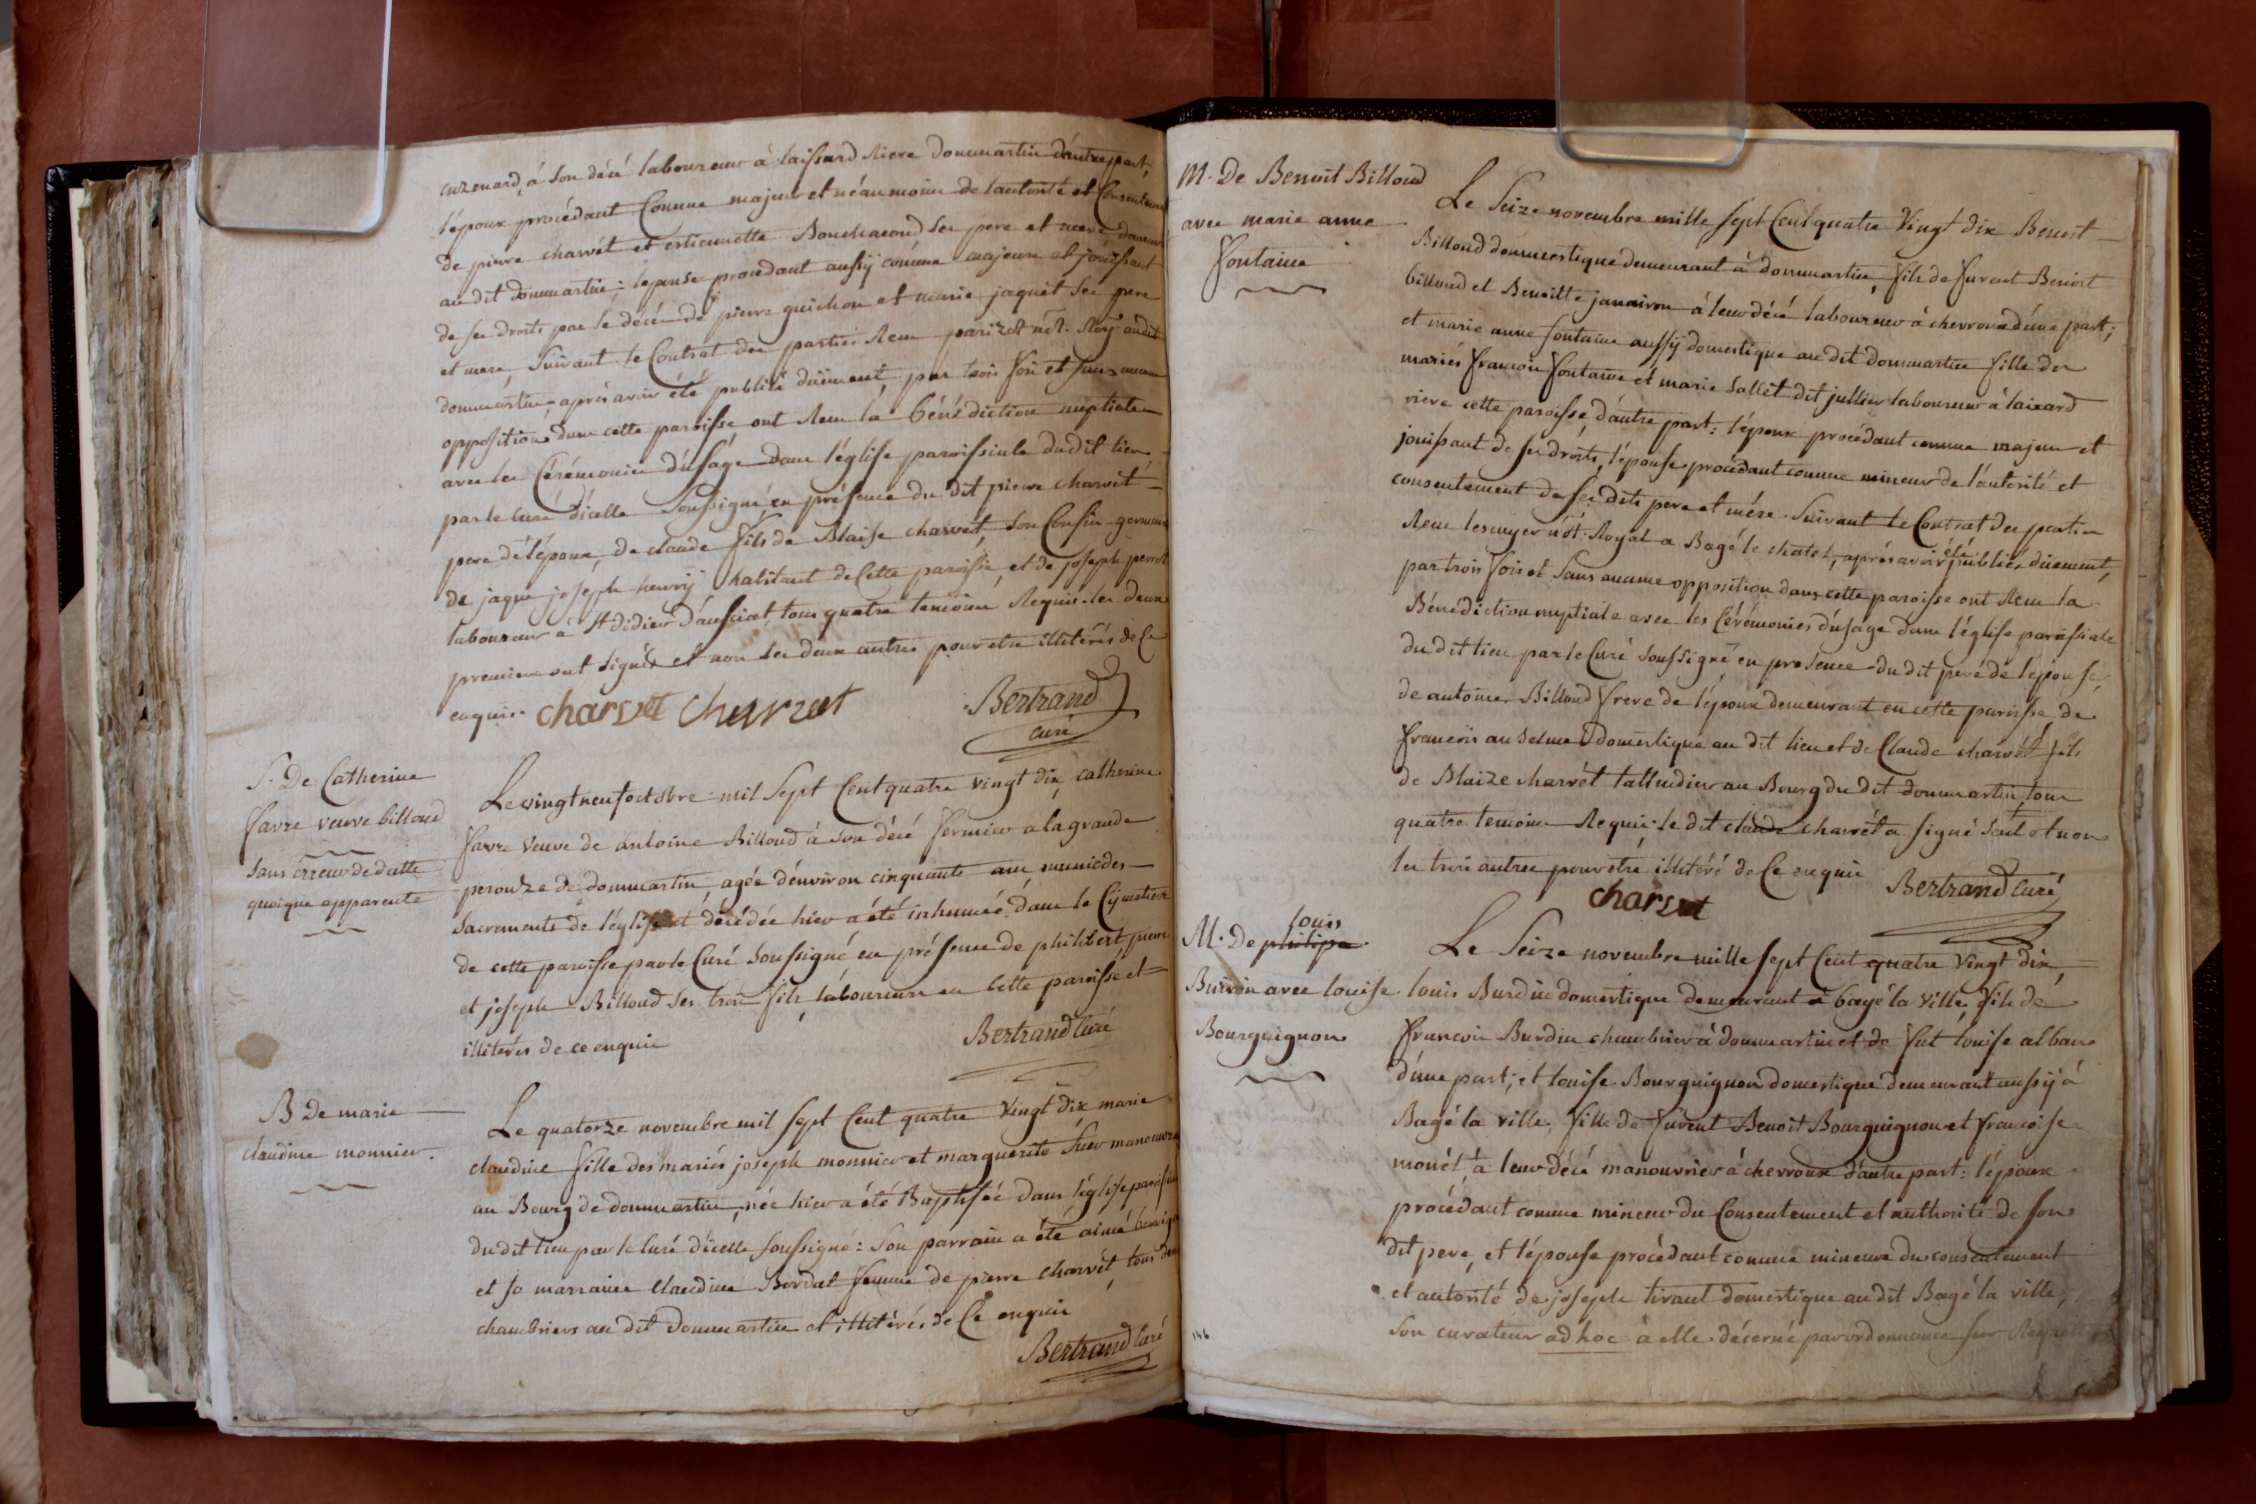 cuzenard, à son décé laboureur à laissard riere dommartin d'autre part,
l'époux procédant Comme majeur et néanmoins de lautorité et Consentement
de pierre charvét et estiennette Bouchacourd ses pere et mere demeurant
au dit dommartin; lepouse procedant aussÿ comme majeure et jouissant
de ses droits par le décé de pierre guichon et marie jaquet ses pere
et mere, Suivant le Contrat des parties Reçu parizot nôt. Roÿ. audit
dommartin, après avoir été publiés duëment, par trois fois et sans aucune
opposition dans cette paroisse ont Reçu la bénédiction nuptiale
avec les Cérémonies d'usage dans l'église paroissiale dudit lieu
par le curé d'icelle Soussigné en présence du dit pierre charvét
pere de l'époux, de claude fils de Blaise charvet, son Cousin germain
de jaque joseph henrÿ habitant de Cette paroisse, et de joseph perret
laboureur à St didier d'aussiat, tous quatre temoins Requis. les deux
premiers ont signés et non les deux autres pour etre illitérés de Ce
enquis. charvet charvet Bertrand
curé
S. De Catherine
favre veuve billoud
sans érreur de datte
quoique apparente
Le vingt neuf octobre mil Sept Cent quatre vingt dix, catherine
favre veuve de antoine Billoud à son décé fermier a la grande
perouze de dommartin, agée d'environ cinquante ans municdes
sacrements de l'église et décédée hier a été inhumée dans le Cÿmetiere
de cette paroisse par le Curé Soussigné en présence de philibert, pierre
et joseph Billoud ses trois fils, laboureurs en Cette paroisse et
illiterés de ce enquis
Bertrand Curé
B De marie
claudine monnier.
Le quatorze novembre mil sept Cent quatre vingt dix marie
claudine fille des mariés joseph monnier et marguerite manouvriers
au Bourg de dommartin, née hier a été Baptisée dans l'église paroissiale
du dit lieu par le Curé d'icelle soussigné: son parrain a été aimé
et sa marraine claudine Bordat femme de pierre charvét, tous deux
chambriers au dit Dommartin et illitérés de Ce enquis
Bertrand Curé
M. De Benoit Billoud
avec marie anne
fontaine
Le Seize novembre mille sept Cent quatre Vingt dix Benoit
Billoud domestique demeurant à dommartin, fils de furent Benoit
billoud et Benoitte janaivon à leur décé laboureur à chevroux d'une part;
et marie anne fontaine aussÿ domestique au dit dommartin fille des
mariés françois fontaine et marie Sallet dit jullin laboureur à laizard
riere cette paroisse, d'autre part: l'époux procédant comme majeur et
jouissant de ses droits, l'épouse procédant comme mineur de l'autorité et
consentement de ses dits pere et mére. Suivant le Contrat des parties
Reçu lescuyer nôt. Royal a Bagé le chatel, après avoir été publiés duement,
par trois fois et sans aucune opposition dans cette paroisse ont Reçu la
Bénédiction nuptiale avec les Cérémonies d'usage dans l'église paroissiale
du dit lieu par le Curé soussigné en présence du dit pere de l'épouse,
de antoine Billoud frere de l'époux demeurant en cette paroisse, de
françois anselme domestique au dit lieu et de Claude charvét fils
de Blaize charvét tallier au Bourg du dit dommartin, tous
quatre temoins Requis. le dit claude charvét a signé seul et non
les trois autres pour etre illitéré de Ce enquis Bertrand Curé
charvet
M. De philipe louis
Buirin avec louise
Bourguignon
Le Seize novembre mille sept Cent quatre Vingt dix,
louis Burdin domestique demeurant à bagé la ville, fils de
françois Burdin chambrier à dommartin et de fut louise alban
d'une part; et louise Bourguignon domestique demeurant aussÿ à
Bagé la ville, fille de furent Benoit Bourguignon et françoise
monét, à leur décé manouvrier à chevroux d'autre part: l'époux
procédant comme mineur du Consentement et authorité de son
dit pere, et l'épouse procédant comme mineure du consentement
et autorité de joseph tirant domestique au dit Bagé la ville,
son curateur ad hoc à elle décerné par ordonnance sur Requête
146